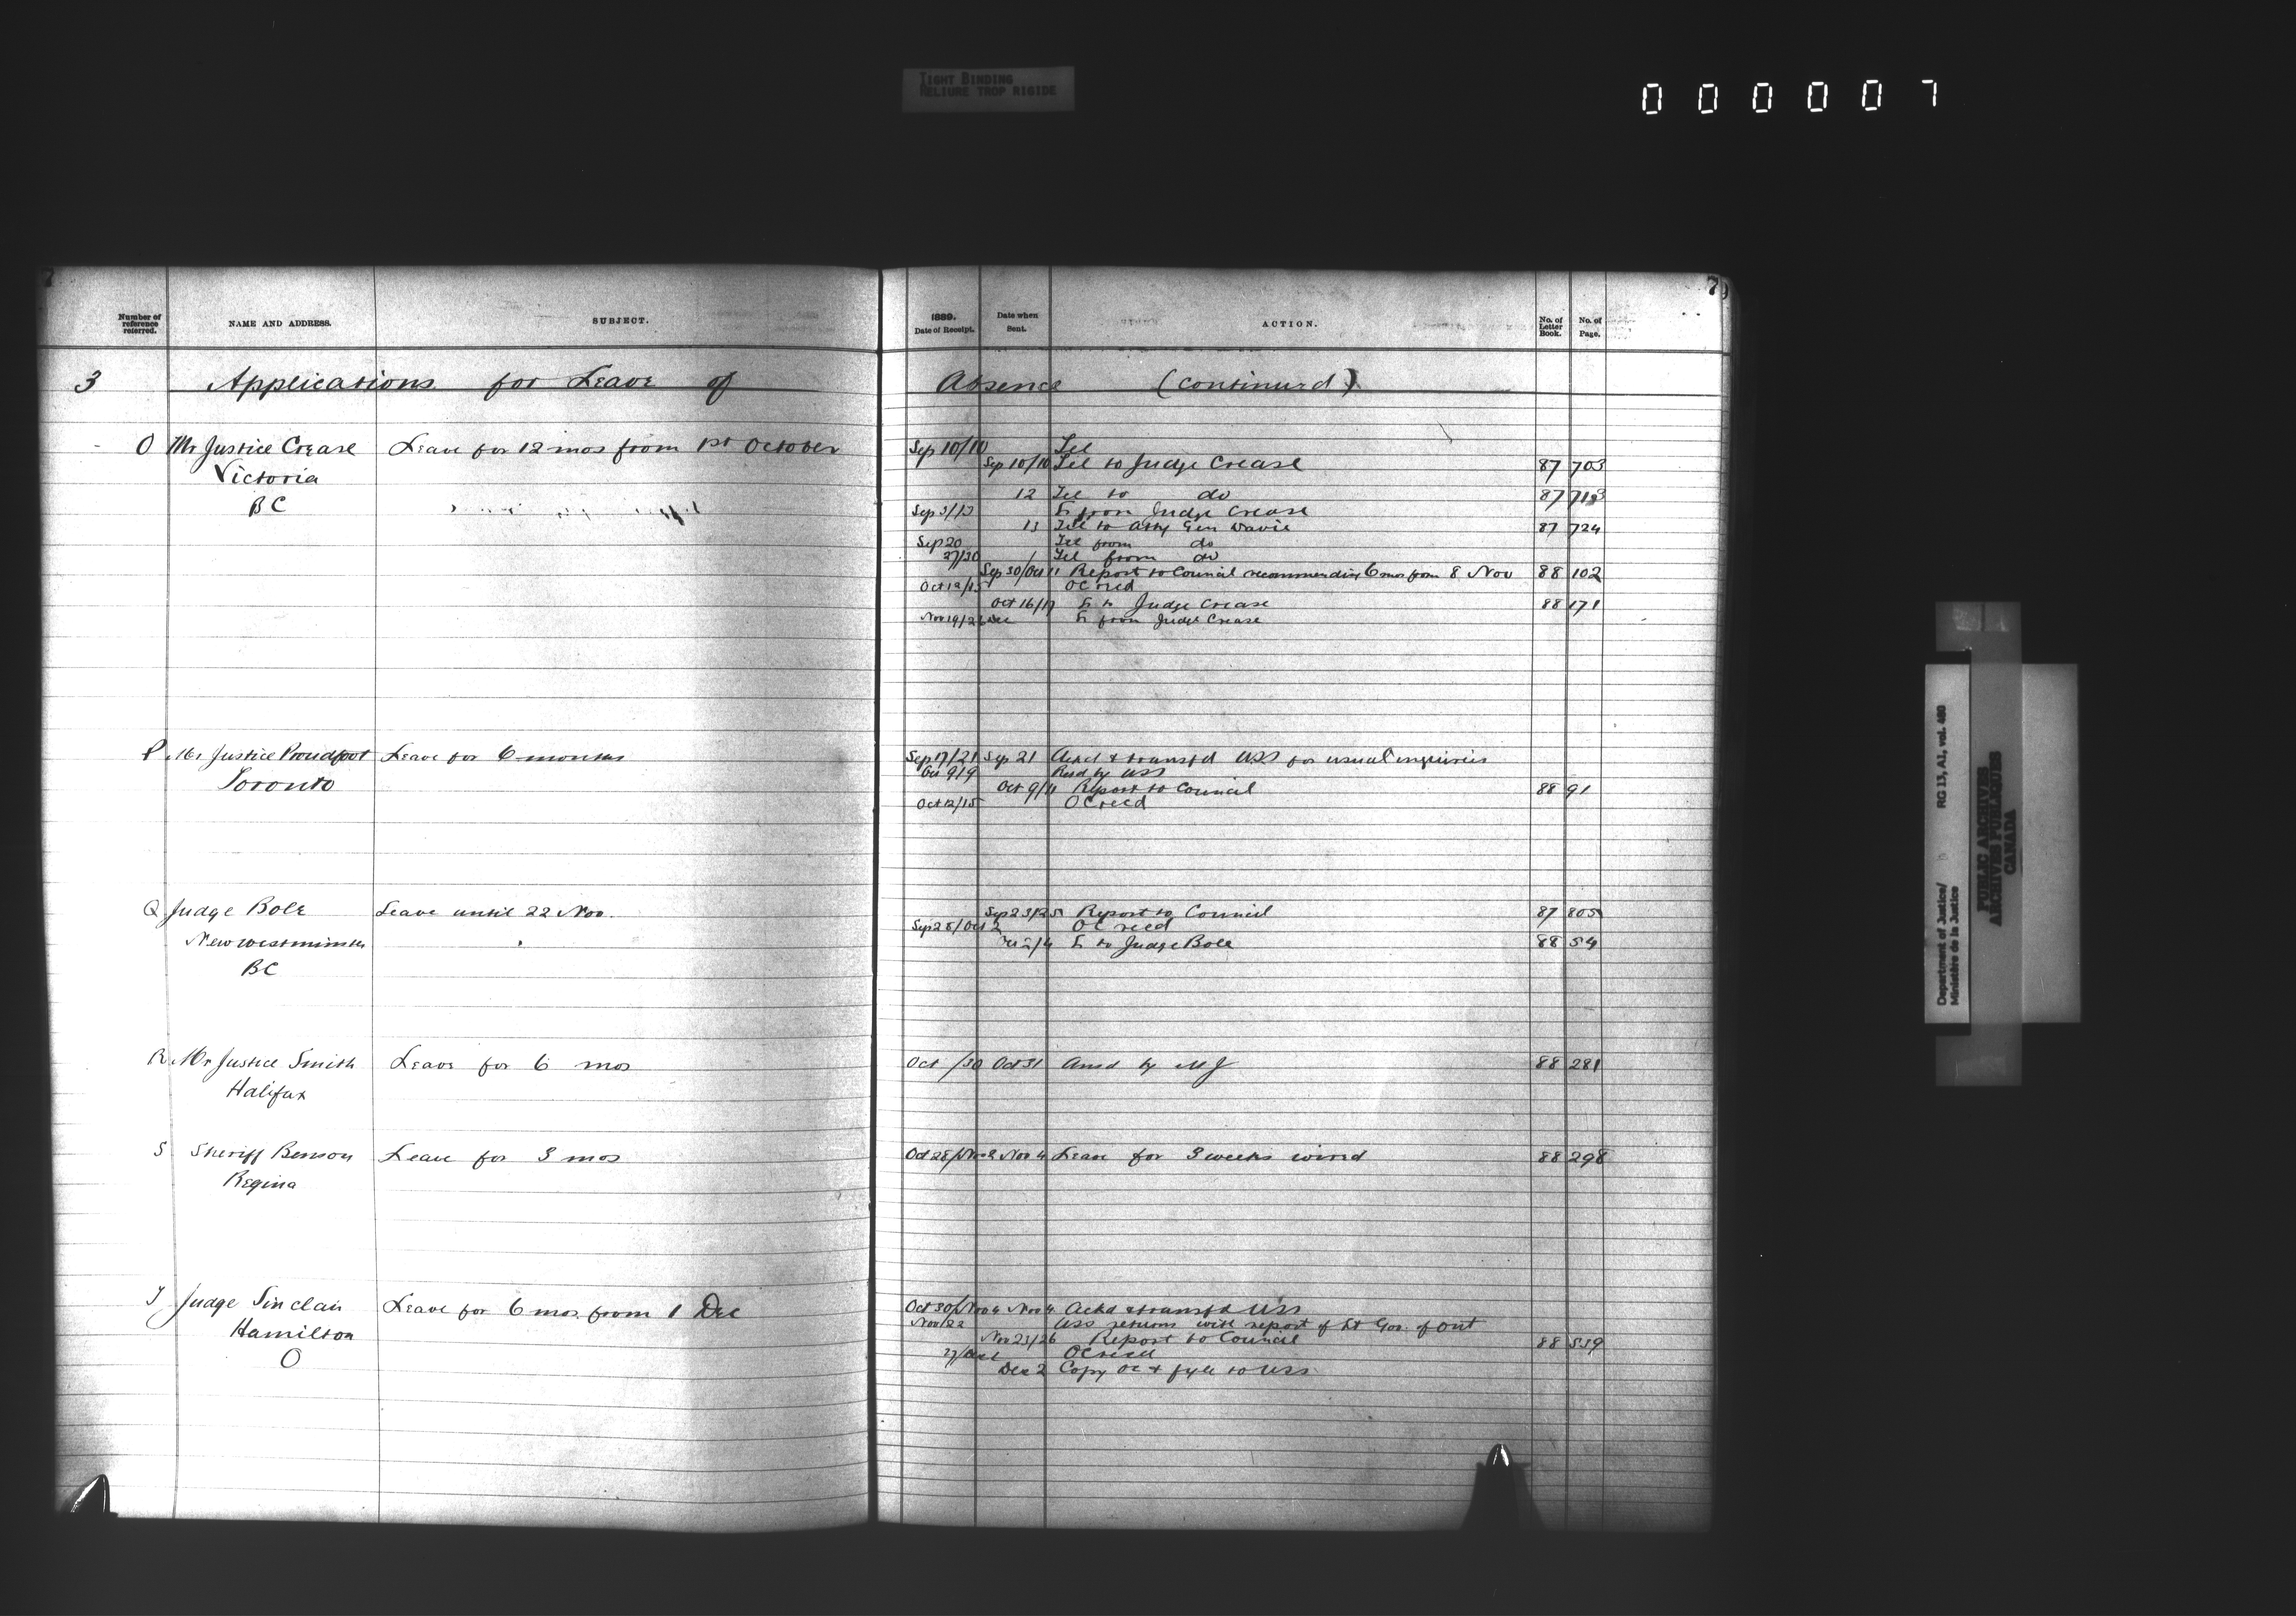 TIGHT BINDING
RELIURE TROP RIGIDE
000007
7
7
Number of reference referred.
NAME AND ADDRESS.
SUBJECT.
1889.
Date of Receipt.
Date when Sent.
ACTION.
No. of Letter Book.
No. of Page.
3 Applications for Leave of Absence (continued)
O Mr Justice Crease Leave for 12 mos from 1st October
Victoria
BC
Sep 10/10 Tel
Sep 10/10 Tel to Judge Crease 87 703
12 Tel to do 87
Sep 3/13 Lr from Judge Crease
13 Tel to Atty Gen Davie 87 724
Sep 20 Tel from do
27/30 Tel from do
Sep 30/Oct 11 Report to Council recommending 6 mos from 8 Nov 88 102
Oct 12/15 OC recd
Oct 16/17 Lr to Judge Crease 88 171
Nov 19/ Lr from Judge Crease
P Mr Justice Proudfoot Leave for 6 months
Toronto
Sep 17/21 Sep 21 Ackd & transfd USS for usual inquiries
Oct 9/9 Retd by USS
Oct 9/11 Report to Council 88 91
Oct 12/15 OC recd
Q Judge Bole Leave until 22 Nov.
New Westminster
BC
Sep 23/25 Report to Council 87 805
Sep 28/Oct 2 OC recd
Oct 2/4 Lr to Judge Bole 88 54
R Mr Justice Smith Leave for 6 mos
Halifax
Oct /30 Oct 31 Ansd by MJ 88 281
S Sheriff Benson Leave for 3 mos
Regina
Oct 28/Nov 2 Nov 4 Leave for 3 weeks wired 88 298
T Judge Sinclair Leave for 6 mos from 1 Dec
Hamilton
O
Oct 30/Nov 4 Nov 4 Ackd & transfd USS
Nov/22 USS returns with report of Lt Gov. of Ont
Nov 23/26 Report to Council 88 539
27/Dec 2 OC recd
Dec 2 Copy OC & fyle to USS
Department of Justice/
Ministère de la Justice
RG 13, A1, vol. 480
PUBLIC ARCHIVES
ARCHIVES PUBLIQUES
CANADA